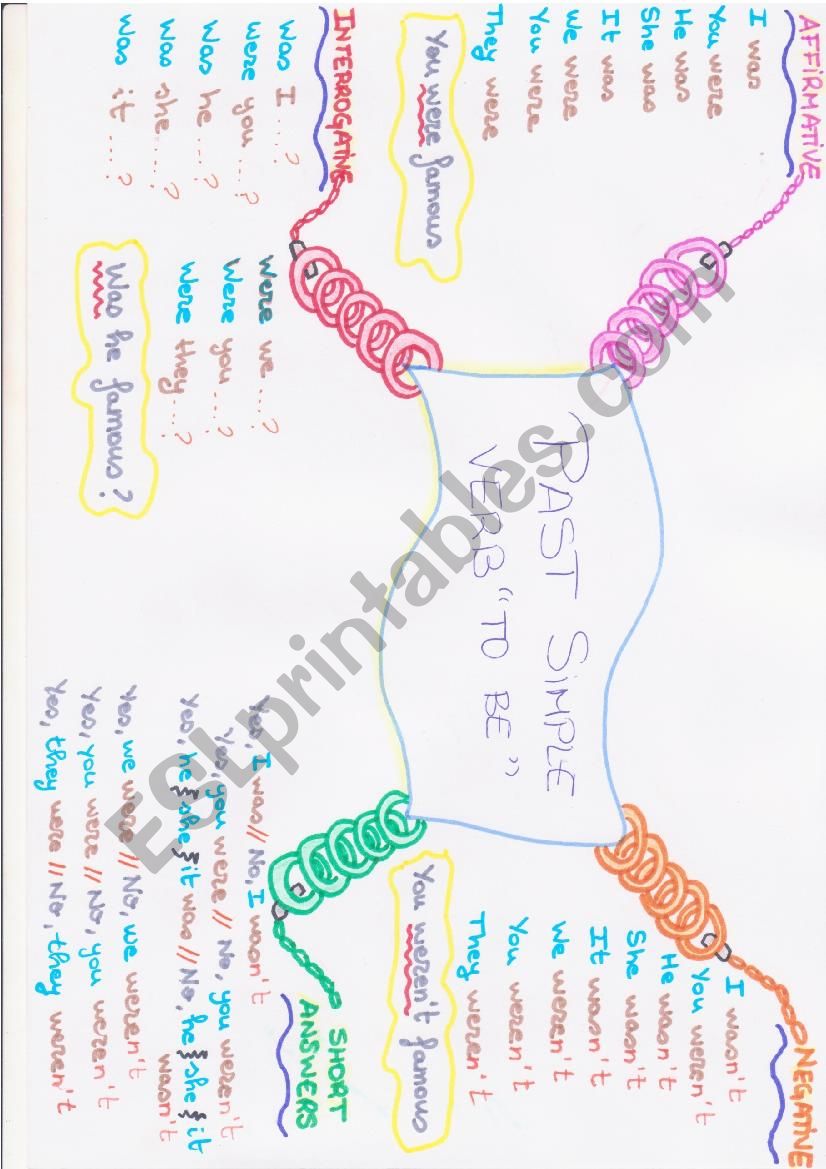 PAST SIMPLE
VERB "TO BE"
AFFIRMATIVE
I was
You were
He was
She was
It was
We were
You were
They were
You were famous
NEGATIVE
I wasn't
You weren't
He wasn't
She wasn't
It wasn't
We weren't
You weren't
They weren't
You weren't famous
INTERROGATIVE
Was I ....?
Were you ....?
Was he ....?
Was she ....?
Was it ....?
Were we ....?
Were you ....?
Were they ....?
Was he famous?
SHORT
ANSWERS
Yes, I was // No, I wasn't
Yes, you were // No, you weren't
Yes, he she it was // No, he she it
wasn't
Yes, we were // No, we weren't
Yes, you were // No, you weren't
Yes, they were // No, they weren't
ESLprintables.com